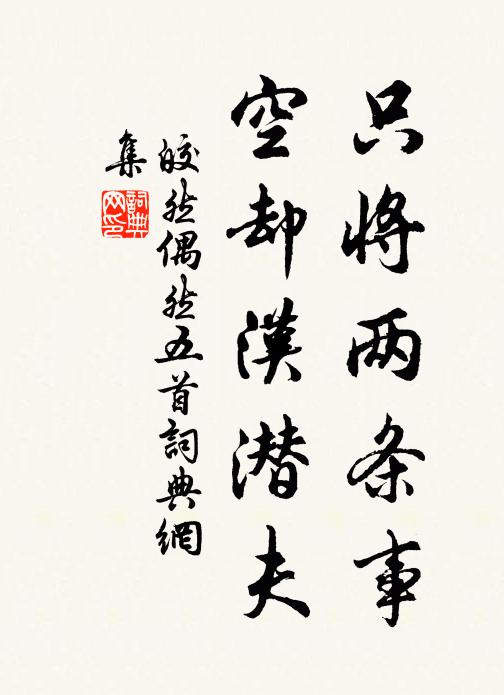 只将两条事
空却漢潜夫
皎然偶然五首詞典網
集
詞典
网印